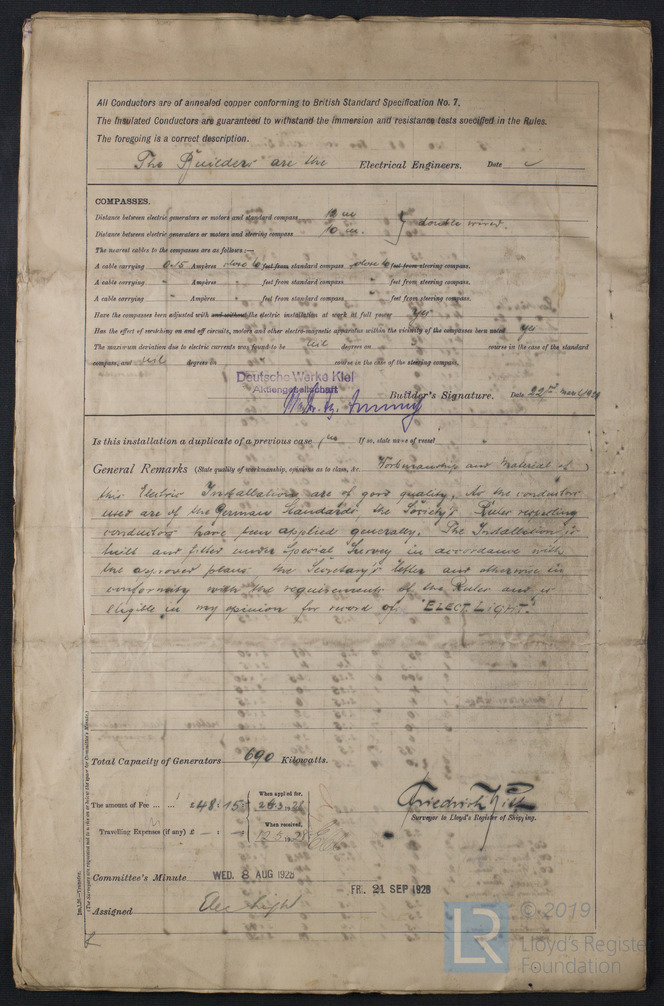 All Conductors are of annealed copper conforming to British Standard Specification No. 7.
The Insulated Conductors are guaranteed to withstand the immersion and resistance tests specified in the Rules.
The foregoing is a correct description.
The Builders are the Electrical Engineers. Date
COMPASSES.
Distance between electric generators or motors and standard compass 12 m
Distance between electric generators or motors and steering compass 10 m. } double wired.
The nearest cables to the compasses are as follows:—
A cable carrying 0.15 Ampères close to feet from standard compass close to feet from steering compass.
A cable carrying " Ampères " feet from standard compass " feet from steering compass.
A cable carrying " Ampères " feet from standard compass " feet from steering compass.
Have the compasses been adjusted with and without the electric installation at work at full power yes
Has the effect of switching on and off circuits, motors and other electro-magnetic apparatus within the vicinity of the compasses been noted yes
The maximum deviation due to electric currents was found to be nil degrees on course in the case of the standard
compass, and nil degrees on course in the case of the steering compass.
Deutsche Werke Kiel
Aktiengesellschaft
Builder's Signature. Date 22nd March 1928
Is this installation a duplicate of a previous case If so, state name of vessel "
General Remarks (State quality of workmanship, opinions as to class, &c. Workmanship and Material of)
this Electric Installation are of good quality. As the conductors
used are of the German Standards the Society's Rules regarding
conductors have been applied generally. The Installation is
built and fitted under Special Survey in accordance with
the approved plans the Secretary's letter and otherwise in
conformity with the requirements of the Rules and is
eligible in my opinion for record of "ELECT. LIGHT."
Total Capacity of Generators 690 Kilowatts.
The amount of Fee ... ... £ 48 : 15 : When applied for, 26.3.1928
Travelling Expenses (if any) £ — : — When received, 12.5.1928
Surveyor to Lloyd's Register of Shipping.
Friedrich
Committee's Minute WED. 8 AUG 1928
FRI. 21 SEP 1928
Assigned Elec Light
Transfer.
(The Surveyors are requested not to write on or below the space for Committee's Minute.)
© 2019
LR
Lloyd's Register
Foundation